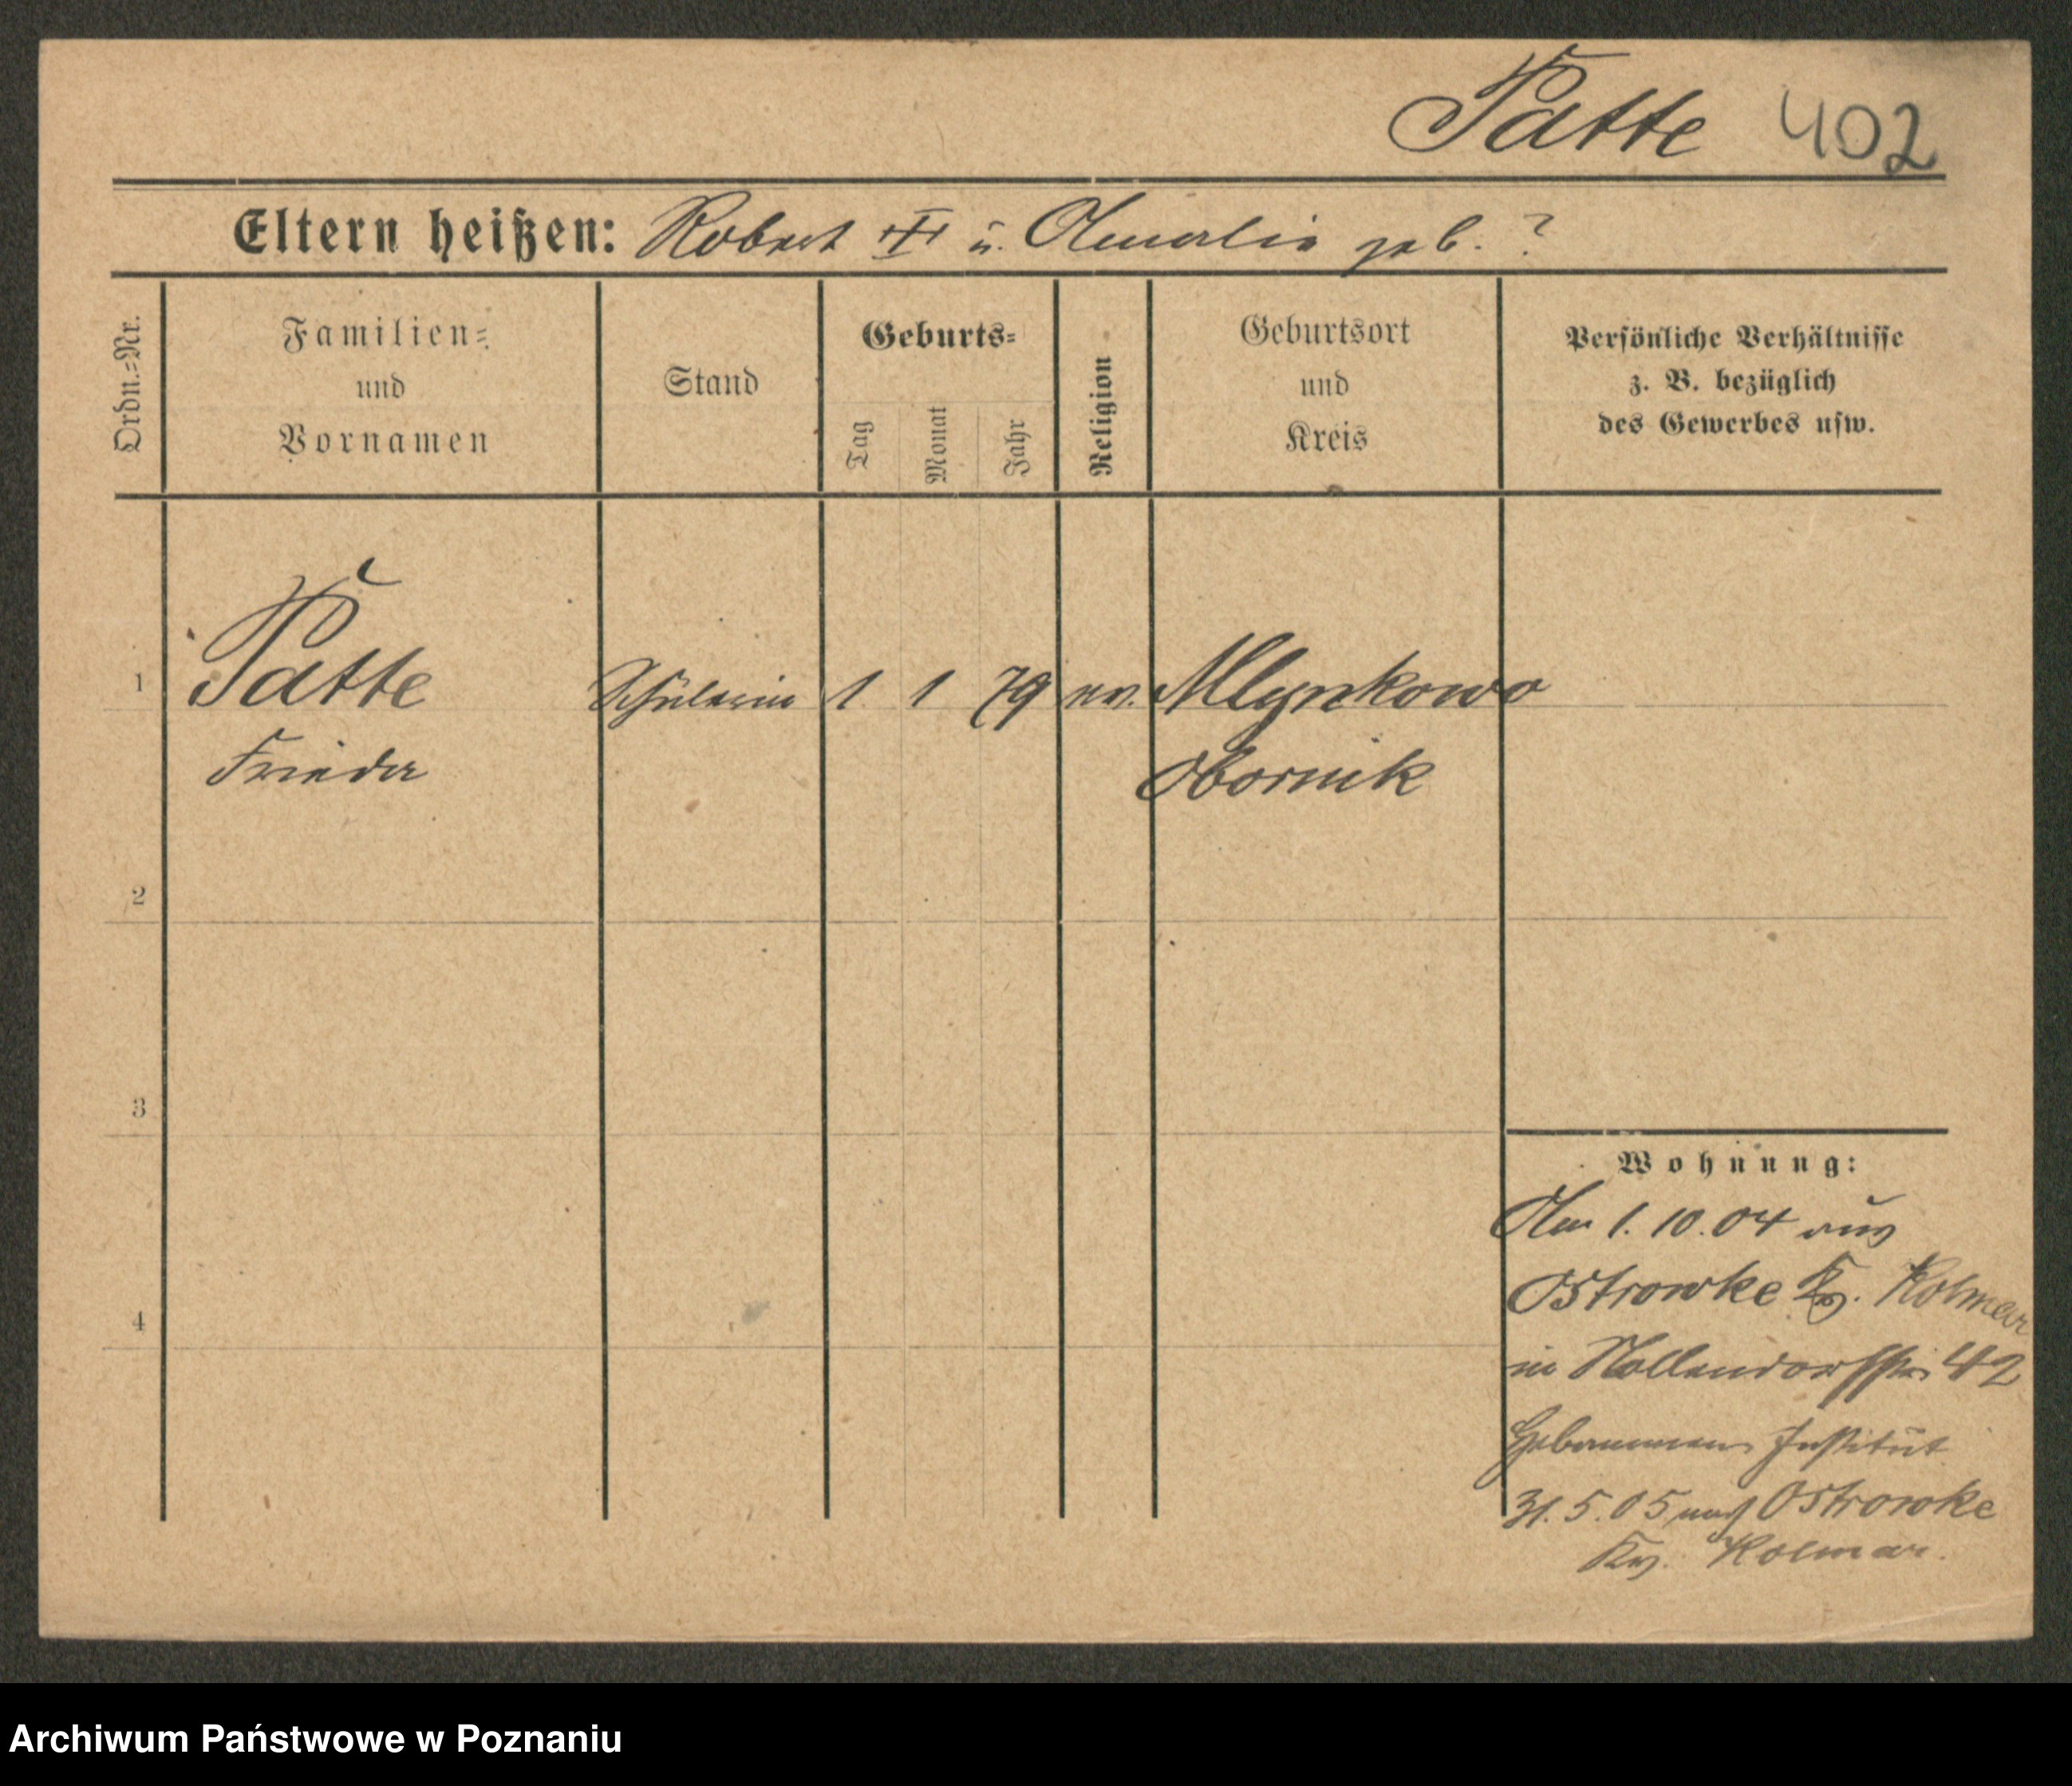 Patte 402
Eltern heißen: Robert ☩ u. Amalie geb. ?
Ordn.=Nr.
Familien=
und
Vornamen
Stand
Geburts=
Tag
Monat
Jahr
Religion
Geburtsort
und
Kreis
Persönliche Verhältnisse
z. B. bezüglich
des Gewerbes usw.
1 Patte Schülerin 1 1 79 ev. Mlynkowo
Frieda Obornik
2
3
4
Wohnung:
Am 1. 10. 04 aus
Ostrowke Krs. Kolmar
in Nollendorfstr. 42
Hebammen Institut
31. 5. 05 nach Ostrowke
Krs. Kolmar.
Archiwum Państwowe w Poznaniu